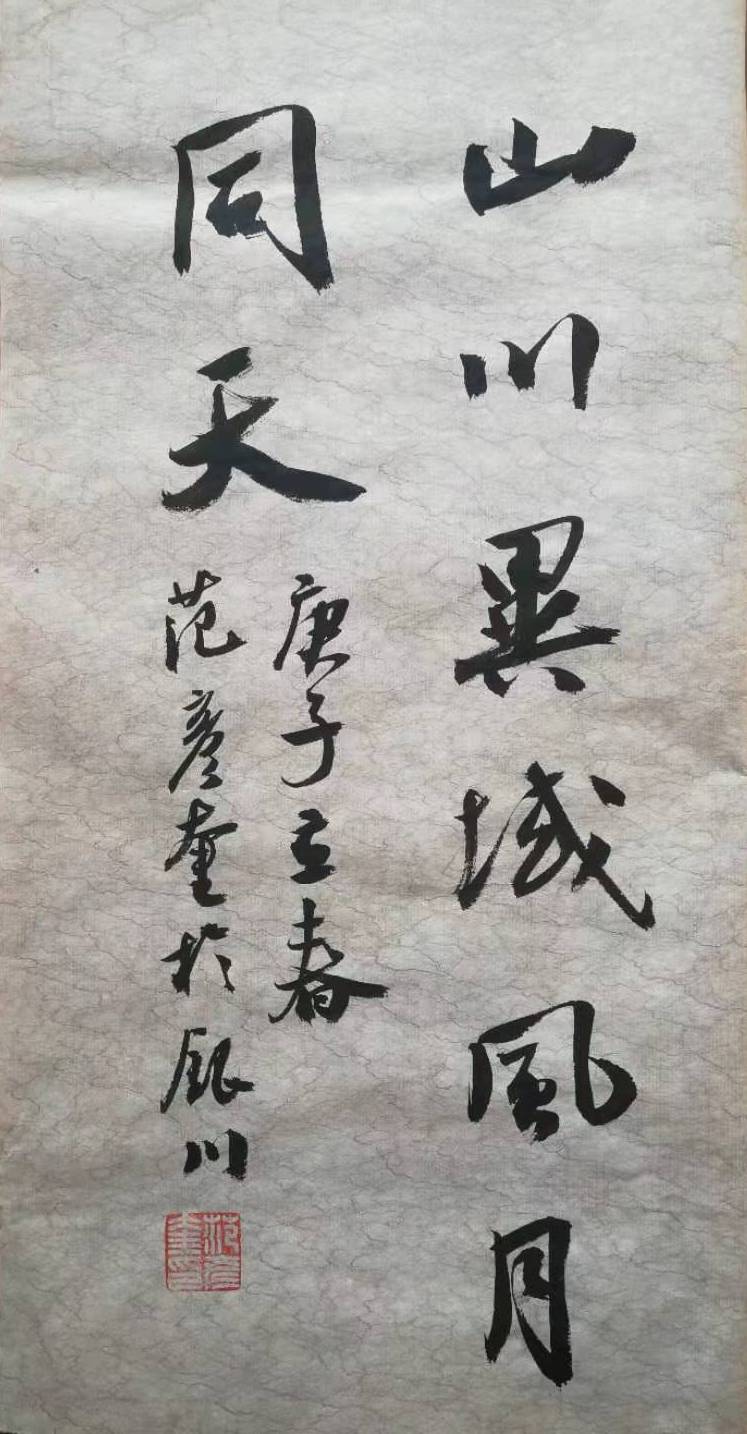 山川異域風月
同天
庚子立春
范彦奎於銀川